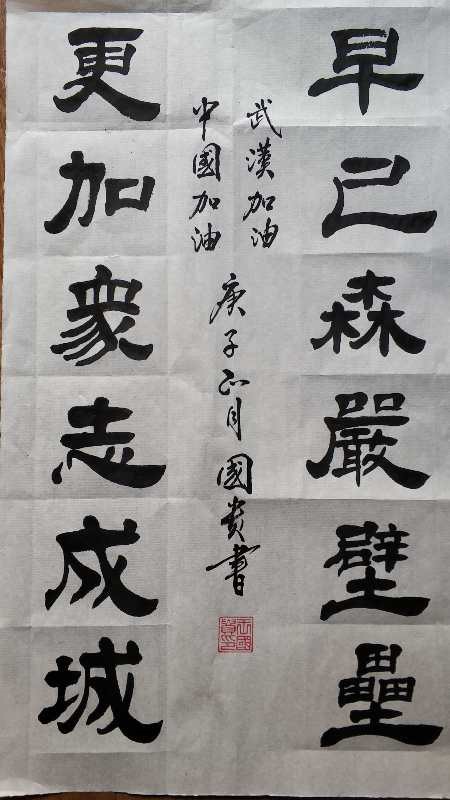 早已森嚴壁壘
更加眾志成城
武漢加油
中國加油
庚子正月國貴書